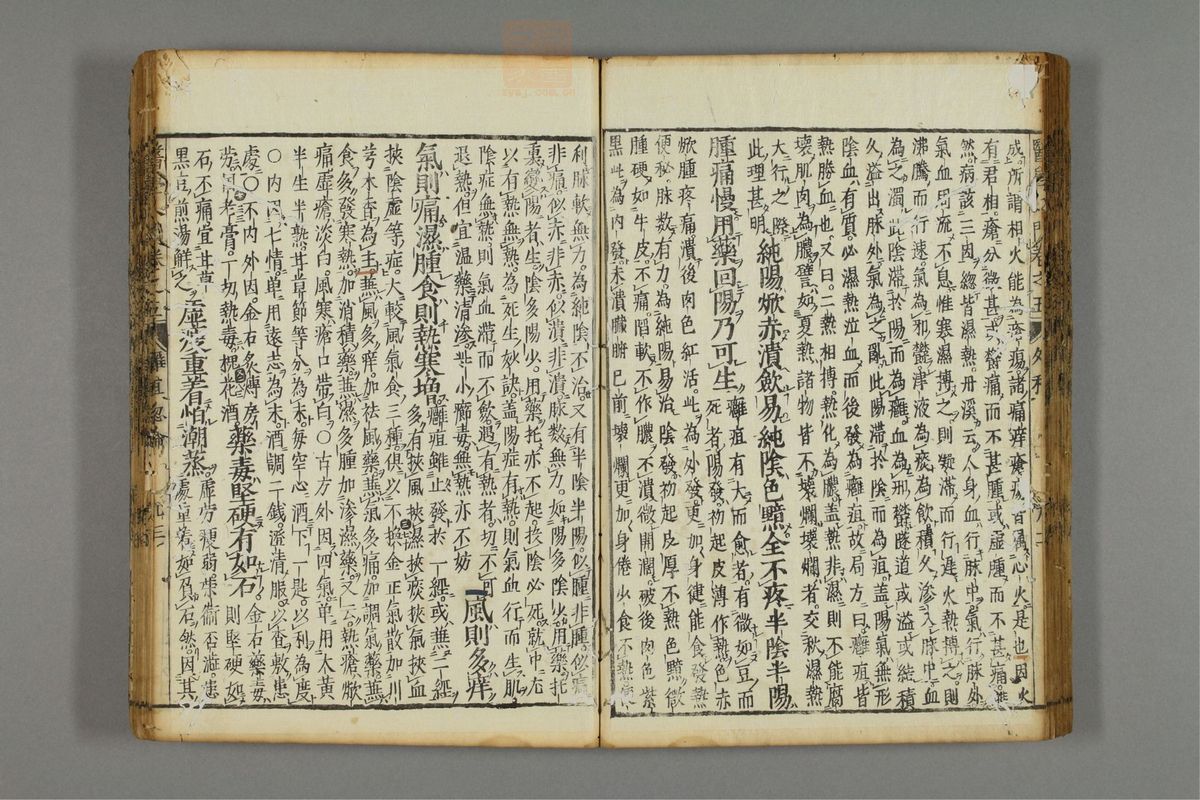 成所謂相火能為瘡瘍諸痛痒瘡瘍皆屬心火是也因火
有君相瘡分微甚或欝痛而不甚腫或虛腫而不甚痛
然病該三因總皆濕熱丹溪云人身血行脉中氣行脉外
氣血周流不息惟寒濕搏之則凝滯而行遲火熱搏之則
沸騰而行速氣為邪欝津液為痰為飲積久滲入脉中血
為之濁此陰滯於陽而為癰血為邪欝隧道或溢或結積
久溢出脉外氣為之亂此陽滯於陰而為疽盖陽氣無形
陰血有質必濕熱泣血而後發為癰疽故局方曰癰疽皆
熱勝血也又曰二熱相搏熱化為膿盖熱非濕則不能腐
壞肌肉為膿譬如夏熱諸物皆不壞爛壞爛者交秋濕熱
大行之際純陽焮赤潰歛易純陰色黯全不疼半陰半陽
此理甚明
腫痛慢用藥回陽乃可生癰疽有大而愈者有微如豆而
死者陽發初起皮薄作熱色赤
焮腫疼痛潰後肉色紅活此為外發更加身健能食發熱
便秘脉數有力為純陽易治陰發初起皮厚不熱色黯微
腫硬如牛皮不痛蹈軟不作膿不潰微開濶破後肉色紫
黑此為內發未潰臟腑已前壞爛更加身倦少食不熱
利脉軟無力為純陰不治又有半陰半陽似腫非腫似痛
非痛似赤非赤似潰非潰脉數無力如陽多陰少用藥托
裏變陽者生陰多陽少用藥托亦不起挨陰必死就中尤
以有熱無熱為死生妙訣盖陽症有熱則氣血行而生肌
陰症無熱則氣血滯而不歛過有熱者切不可
退熱但宜溫藥清滲此小癤毒無熱亦不妨風則多痒
氣則痛濕腫食則熱寒增癰疽雖止發於一經或無二經
多有挾風挾濕挾痰挾氣挾血
挾陰虛等症大較風氣食三種俱以不換金正氣散加川
芎木香為主無風多痒加祛風藥無氣多痛加調氣藥無
食多發寒熱加消積藥無濕多腫加滲濕藥又云熱瘡焮
痛虛瘡淡白風寒瘡口帶白○古方外因四氣單用大黃
半生半熟甘草節等分為末每空心酒下一匙以利為度
○內因七情單用遠志為末酒調二錢澄清服以查敷患
處○不內外因金石炙煿房藥毒堅硬有如石金石藥毒
則堅硬如
石不痛宜甘草虛勞重着怕潮蒸虛勞瘦弱榮衛否澁患
黑豆煎湯解之處重着如負石然因其